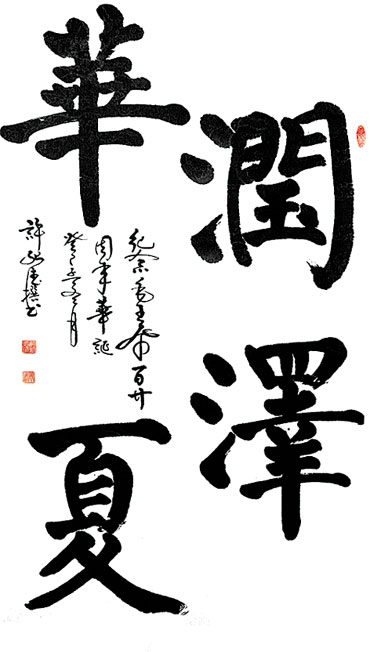 潤澤
華夏
紀念毛主席百廿
周年華誕
癸巳月
許撰书